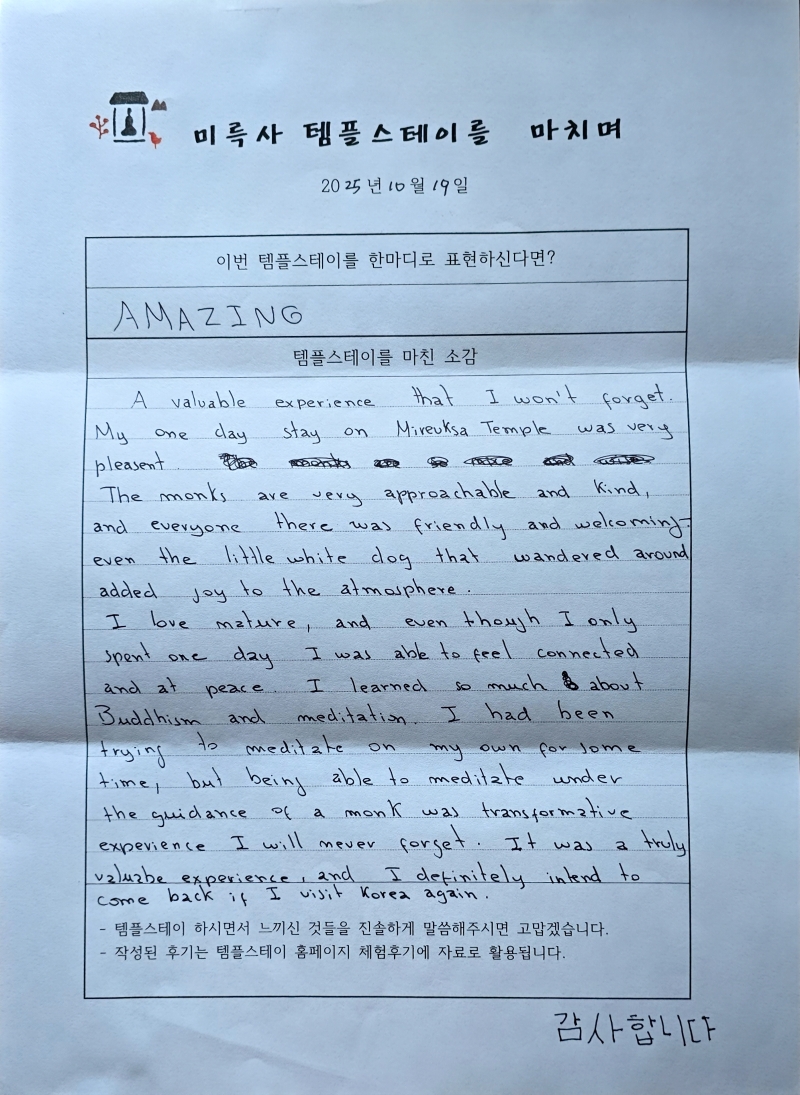 미륵사 템플스테이를 마치며
2025년 10월 19일
이번 템플스테이를 한마디로 표현하신다면?
AMAZING
템플스테이를 마친 소감
A valuable experience that I won't forget.
My one day stay on Mireuksa Temple was very
pleasent.
The monks are very approachable and kind,
and everyone there was friendly and welcoming-
even the little white dog that wandered around
added joy to the atmosphere.
I love nature, and even though I only
spent one day I was able to feel connected
and at peace. I learned so much about
Buddhism and meditation. I had been
trying to meditate on my own for some
time, but being able to meditate under
the guidance of a monk was transformative
experience I will never forget. It was a truly
valuabe experience, and I definitely intend to
come back if I visit Korea again.
- 템플스테이 하시면서 느끼신 것들을 진솔하게 말씀해주시면 고맙겠습니다.
- 작성된 후기는 템플스테이 홈페이지 체험후기에 자료로 활용됩니다.
감사합니다